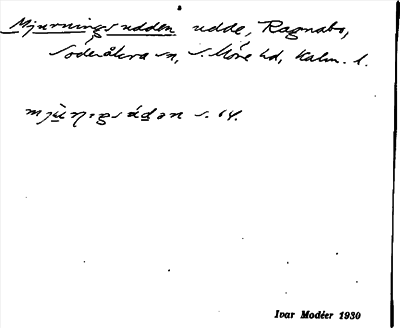 Mjurningsudden udde, Ragnabo,
Söderåkra sn, S. Möre hd, Kalm. l.
mjùŋıgsùdən s. 64.
Ivar Modéer 1930